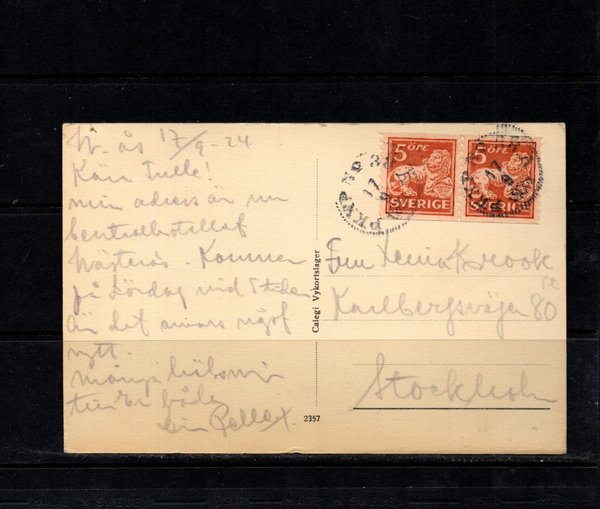 W-ås 17/9-24
Kära Tulle!
min adress är nu
Centralhotellet
Västerås. Kommer
på Lördag
är det annars något
nytt.
många hälsningar
till Er båda
din Pelle
Calegi Vykortslager
2357
5 ÖRE 5 ÖRE
SVERIGE SVERIGE
PKXP NO
Fru Xenia Krook
Karlbergsvägen 80
Stockholm